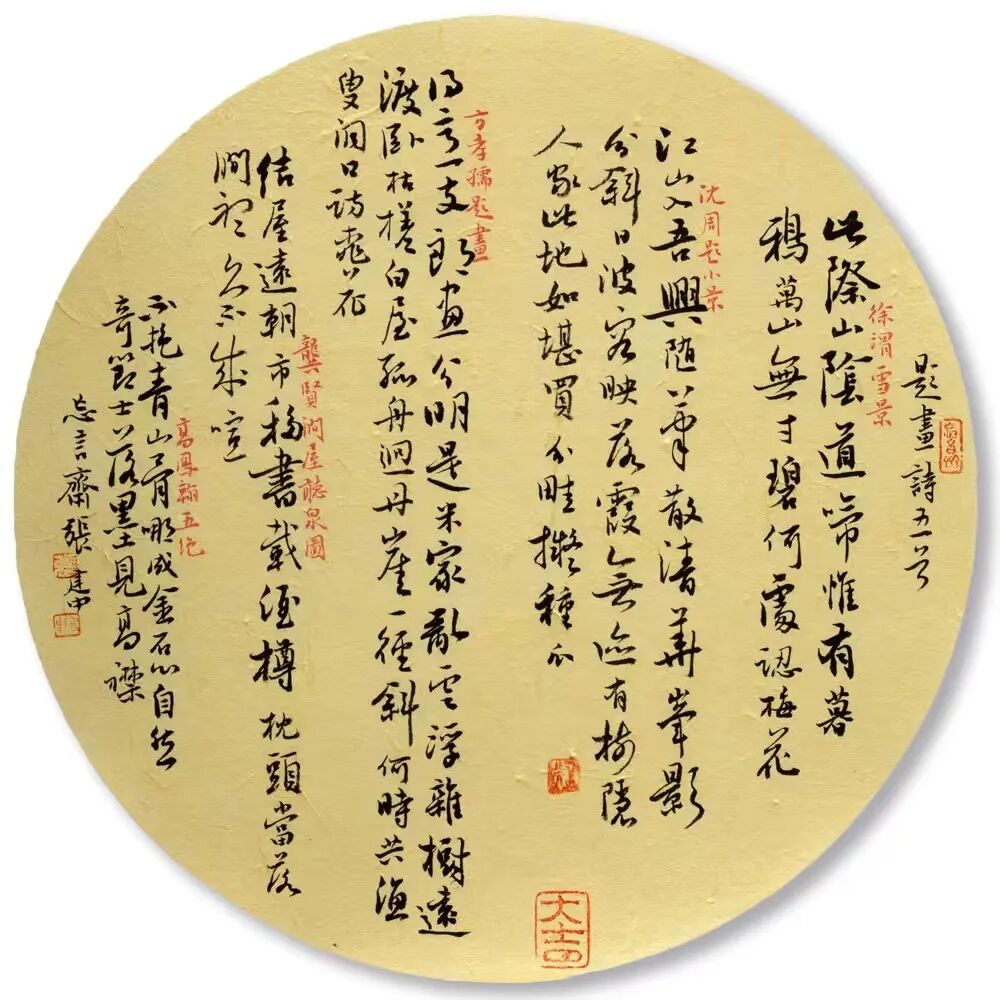 題畫詩五首
徐渭雪景
此際山陰道啼惟有暮
鴉萬山無寸碧何處認梅花
沈周題小景
江山入吾興随筆散清華峯影
分斜日波容映落霞無迹有樹隱
人家此地如堪買分畦擬種瓜
方孝孺題畫
得意支郎畫分明是米家亂雲浮雜樹遠
渡卧枯槎白屋孤舟迥丹崖一徑斜何時共漁
叟洞口訪桃花
龔賢澗屋聽泉圖
結屋遠朝市移書載酒樽枕頭當落
澗聽久不成喧
高鳳翰五絕
不托青山骨哪成金石心自然
奇節士落墨見高襟
忘言齋張建中